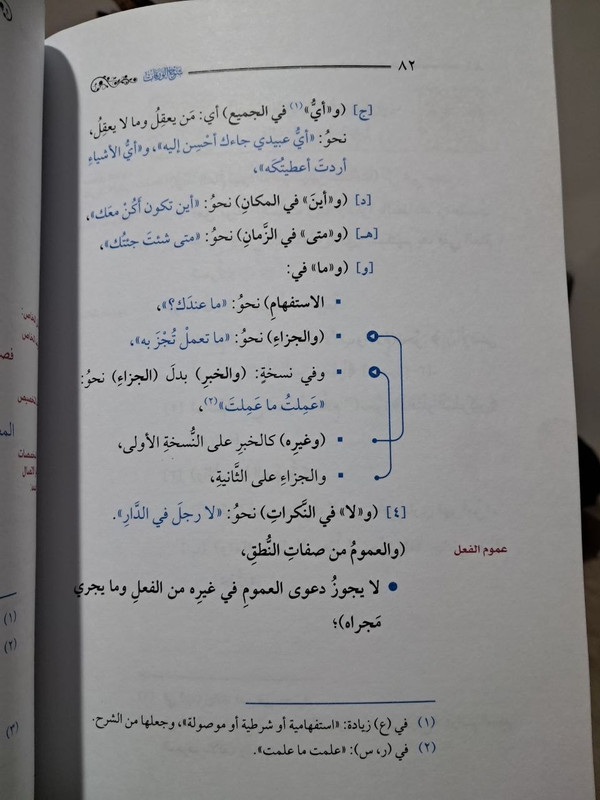 ٨٢
[ج] (و«أيُّ»(١) في الجميع) أي: مَن يعقِلُ وما لا يعقِلُ،
نحوُ: «أيُّ عبيدي جاءك أحْسِن إليه»، و«أيُّ الأشياءِ
أردتَ أعطيتُكَه»،
[د] (و«أينَ» في المكانِ) نحوُ: «أين تكون أَكُنْ معَك»،
[هـ] (و«متى» في الزَّمانِ) نحوُ: «متى شئتَ جئتُك»،
[و] (و«ما» في:
▪ الاستفهامِ) نحوُ: «ما عندَك؟»،
▪ (والجزاءِ) نحوُ: «ما تعملْ تُجْزَ به»،
▪ وفي نسخةٍ: (والخبرِ) بدلَ (الجزاءِ) نحوُ:
«عَمِلتُ ما عَمِلتَ»(٢)،
▪ (وغيرِه) كالخبرِ على النُّسخةِ الأولى،
▪ والجزاءِ على الثَّانيةِ،
[٤] (و«لا» في النَّكراتِ) نحوُ: «لا رجلَ في الدَّارِ».
(والعمومُ من صفاتِ النُّطقِ،
عموم الفعل
● لا يجوزُ دعوى العمومِ في غيرِه من الفعلِ وما يجري
مَجراه)؛
(١) في (ع) زيادة: «استفهامية أو شرطية أو موصولة»، وجعلها من الشرح.
(٢) في (ر، س): «علمت ما علمت».
(١)
(٢)
(٣)